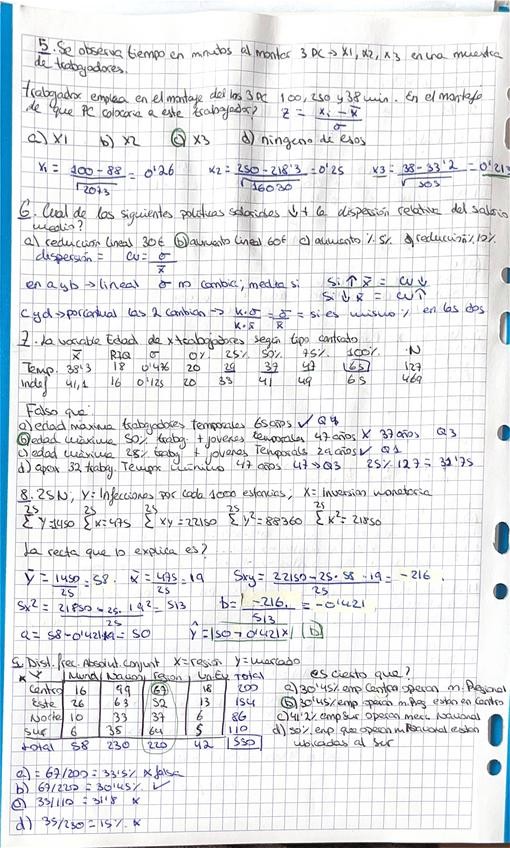 5. Se observa tiempo en minutos al montar 3 PC → X1, X2, X3 en una muestra
de trabajadores.
trabajador emplea en el montaje de los 3 PC 100, 250 y 38 min. En el montaje
de que PC colocaria a este trabajador? Z = xi - x̄ / σ
a) X1 b) X2 c) X3 d) ninguno de esos
X1 = 100 - 88 / √2073 = 0'26 X2 = 250 - 218'3 / √16030 = 0'25 X3 = 38 - 33'2 / √503 = 0'213
6. Cual de las siguientes politicas salariales ↓ + la dispersión relativa del salario
medio?
a) reducción lineal 30€ b) aumento lineal 60€ c) aumento % 5% d) reducción % 10%
dispersión = CV = σ / x̄
en a y b → lineal σ no cambia, media si Si ↑ x̄ = CV ↓
Si ↓ x̄ = CV ↑
c y d → porcentual las 2 cambian → K·σ / K·x̄ = σ / x̄ = si es mismo % en las dos
7. La variable Edad de x trabajadores según tipo contrato
x̄ RIQ σ 0% 25% 50% 75% 100% N
Temp. 38'3 18 0'476 20 29 37 47 65 127
Indef 41,1 16 0'125 20 33 41 49 65 469
Falso que:
a) edad máxima trabajadores Temporales 65 años ✓ Q4
b) edad máxima 50% trabaj. + jovenes temporales 47 años X 37 años Q3
c) edad máxima 25% trabaj + jovenes Temporals 29 años ✓ Q1
d) aprox 32 trabaj. Tempor 47 años 47 → Q3 25% 127 = 31'75
8. 25N, Y = Infecciones por cada 1000 estancias, X = inversion monetaria
25 Σ Y = 1450 25 Σ X = 475 25 Σ XY = 22150 25 Σ Y² = 88360 25 Σ X² = 21850
La recta que lo explica es?
Ȳ = 1450 / 25 = 58. X̄ = 475 / 25 = 19 Sxy = 22150 - 25 · 58 · 19 / 25 = -216
Sx² = 21850 - 25 · 19² / 25 = 513 b = -216 / 513 = -0'421
a = 58 - 0'421·19 = 50 Ŷ = 50 - 0'421X b
9. Dist. frec. Absolut. conjunt X = region Y = mercado
X Y Mund Nacion region Un.Eu Total es cierto que?
Centro 16 99 67 18 200 a) 30'45% emp Centro operan m. Regional
Este 26 63 52 13 154 b) 30'45% emp operan m. Reg estan en Centro
Norte 10 33 37 6 86 c) 41'2% emp Sur operan merc Nacional
Sur 6 35 64 5 110 d) 50% emp que operan m Nacional estan
total 58 230 220 42 550 ubicadas al sur
a) = 67/200 = 33'5% x falsa
b) 67/220 = 30'45% ✓
c) 35/110 = 31'8 x
d) 35/230 = 15% x